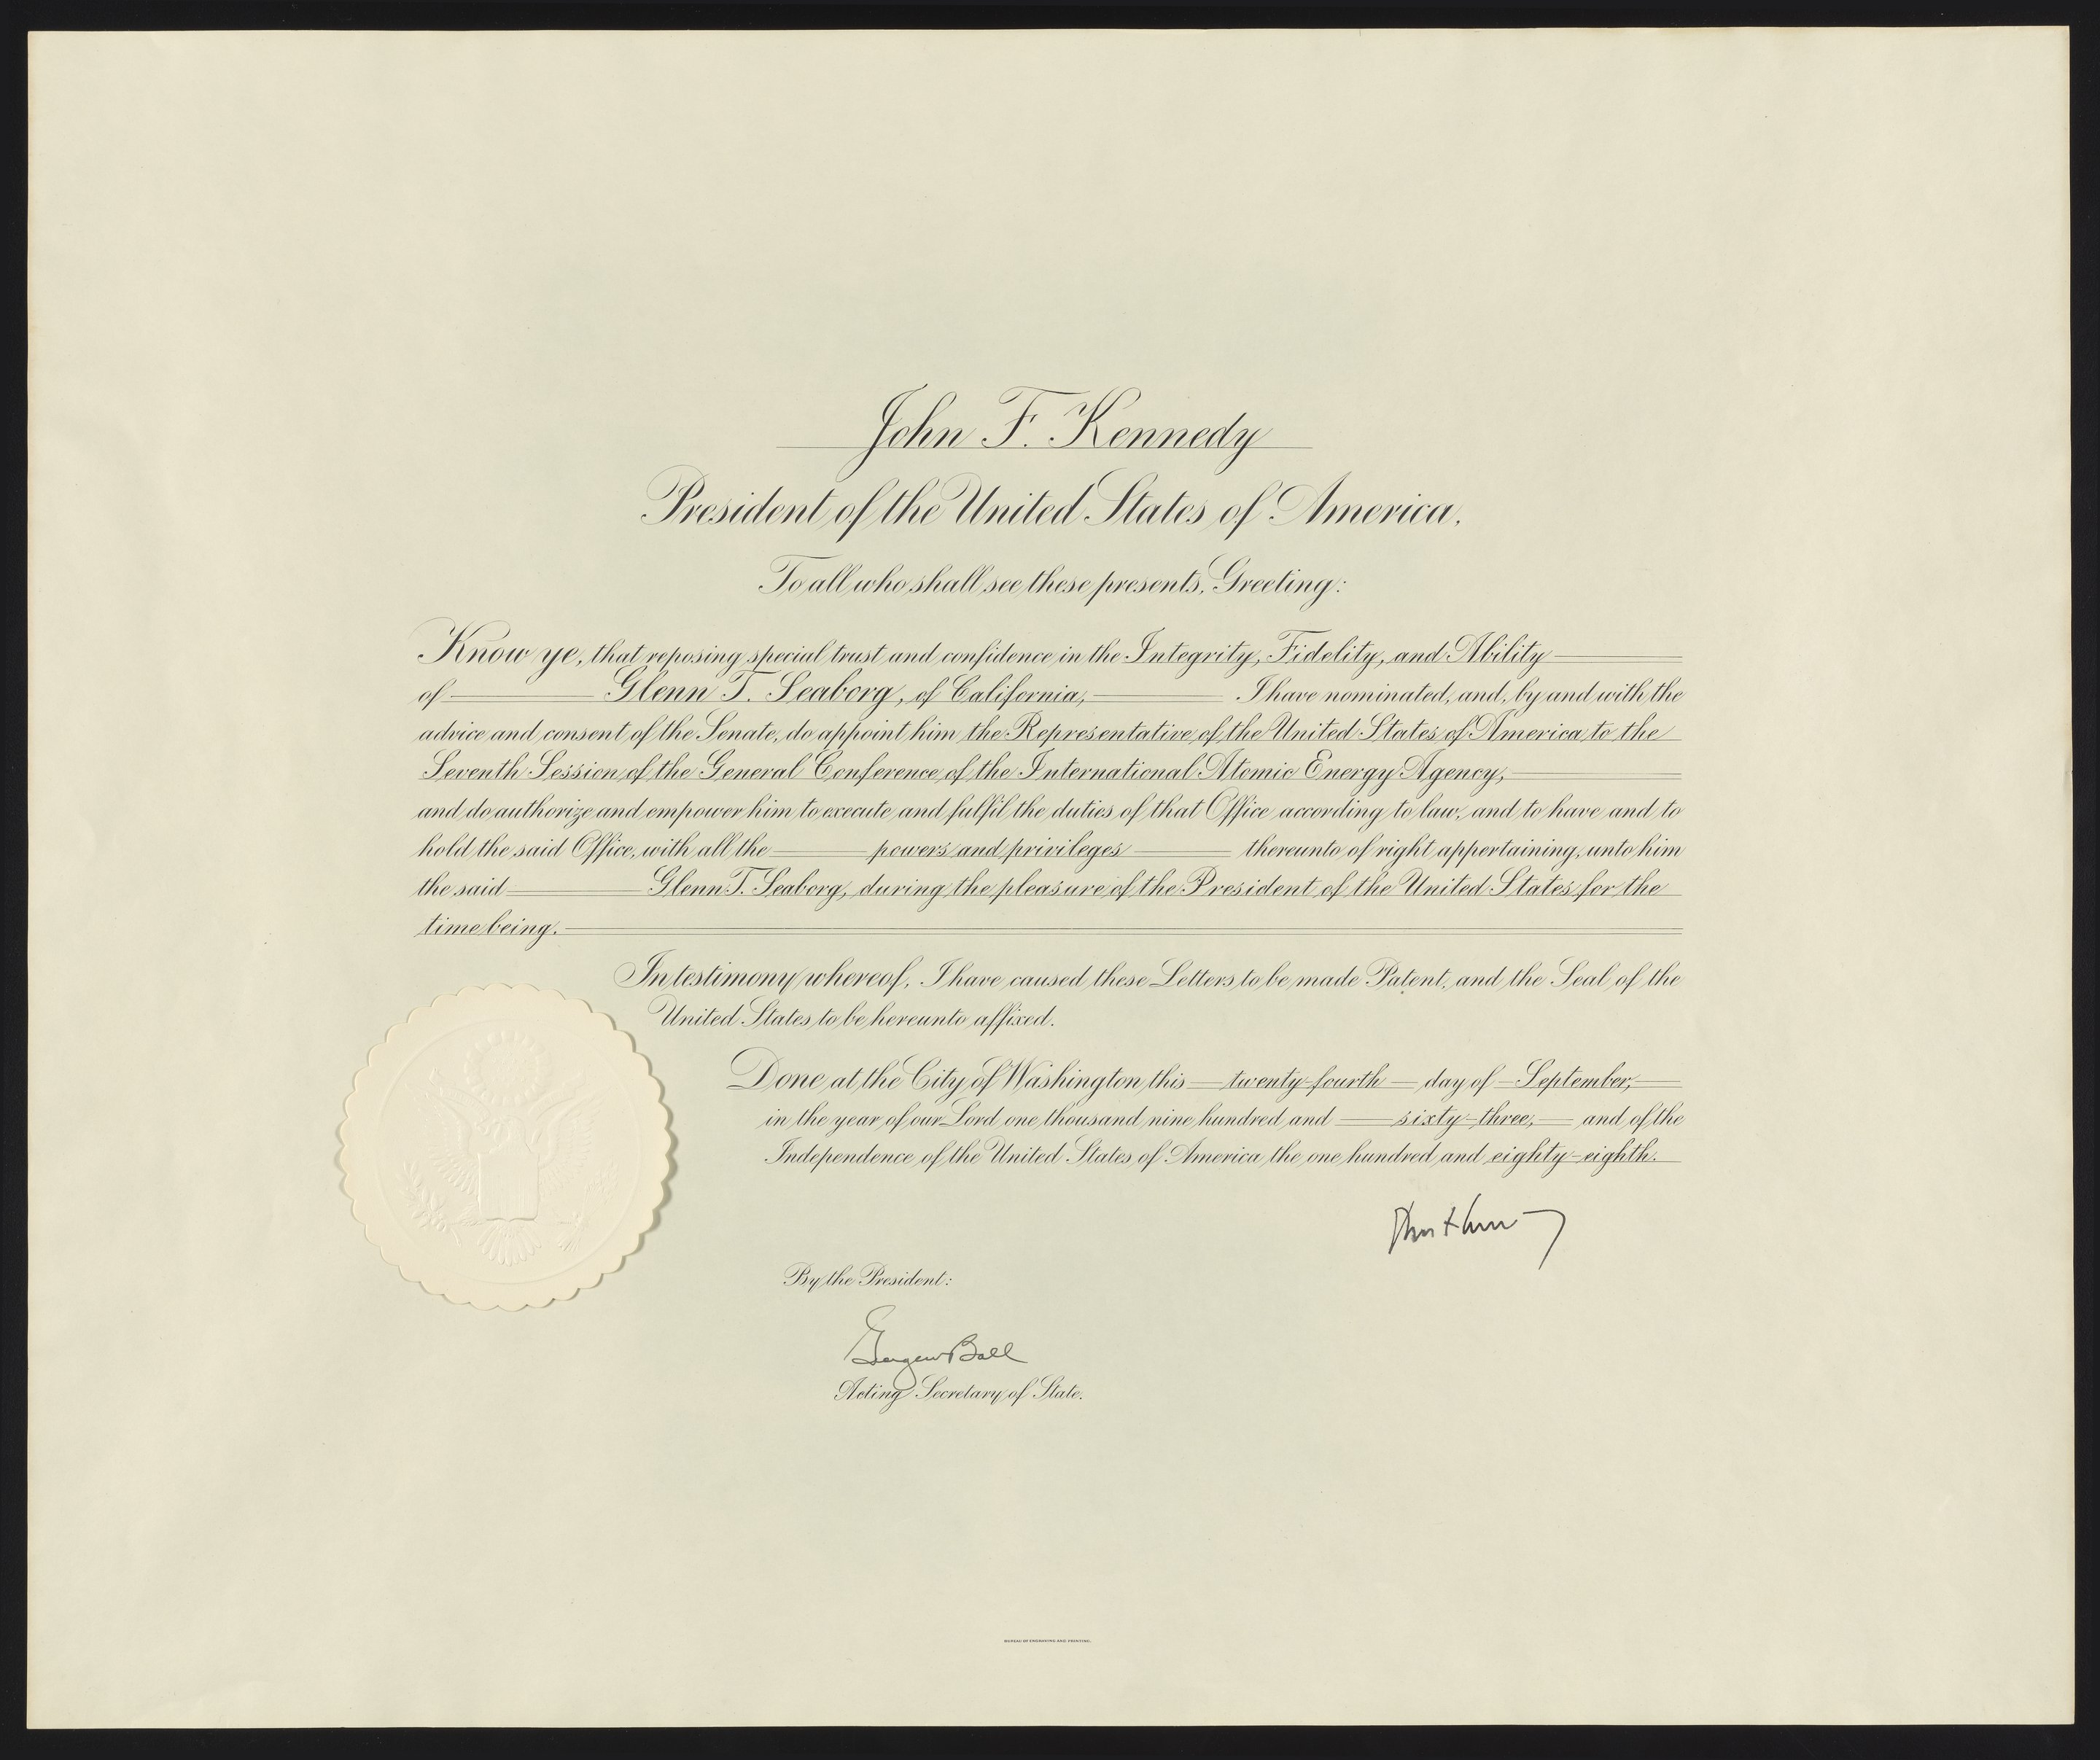 John F. Kennedy
President of the United States of America,
To all who shall see these presents, Greeting:
Know ye, that reposing special trust and confidence in the Integrity, Fidelity, and Ability
of Glenn T. Seaborg, of California, I have nominated, and, by and with the
advice and consent of the Senate, do appoint him the Representative of the United States of America to the
Seventh Session of the General Conference of the International Atomic Energy Agency,
and do authorize and empower him to execute and fulfil the duties of that Office according to law, and to have and to
hold the said Office, with all the powers and privileges thereunto of right appertaining, unto him
the said Glenn T. Seaborg, during the pleasure of the President of the United States for the
time being.
In testimony whereof, I have caused these Letters to be made Patent, and the Seal of the
United States to be hereunto affixed.
Done at the City of Washington this twenty-fourth day of September,
in the year of our Lord one thousand nine hundred and sixty-three, and of the
Independence of the United States of America the one hundred and eighty-eighth.
By the President:
George W Ball
Acting Secretary of State.
BUREAU OF ENGRAVING AND PRINTING.